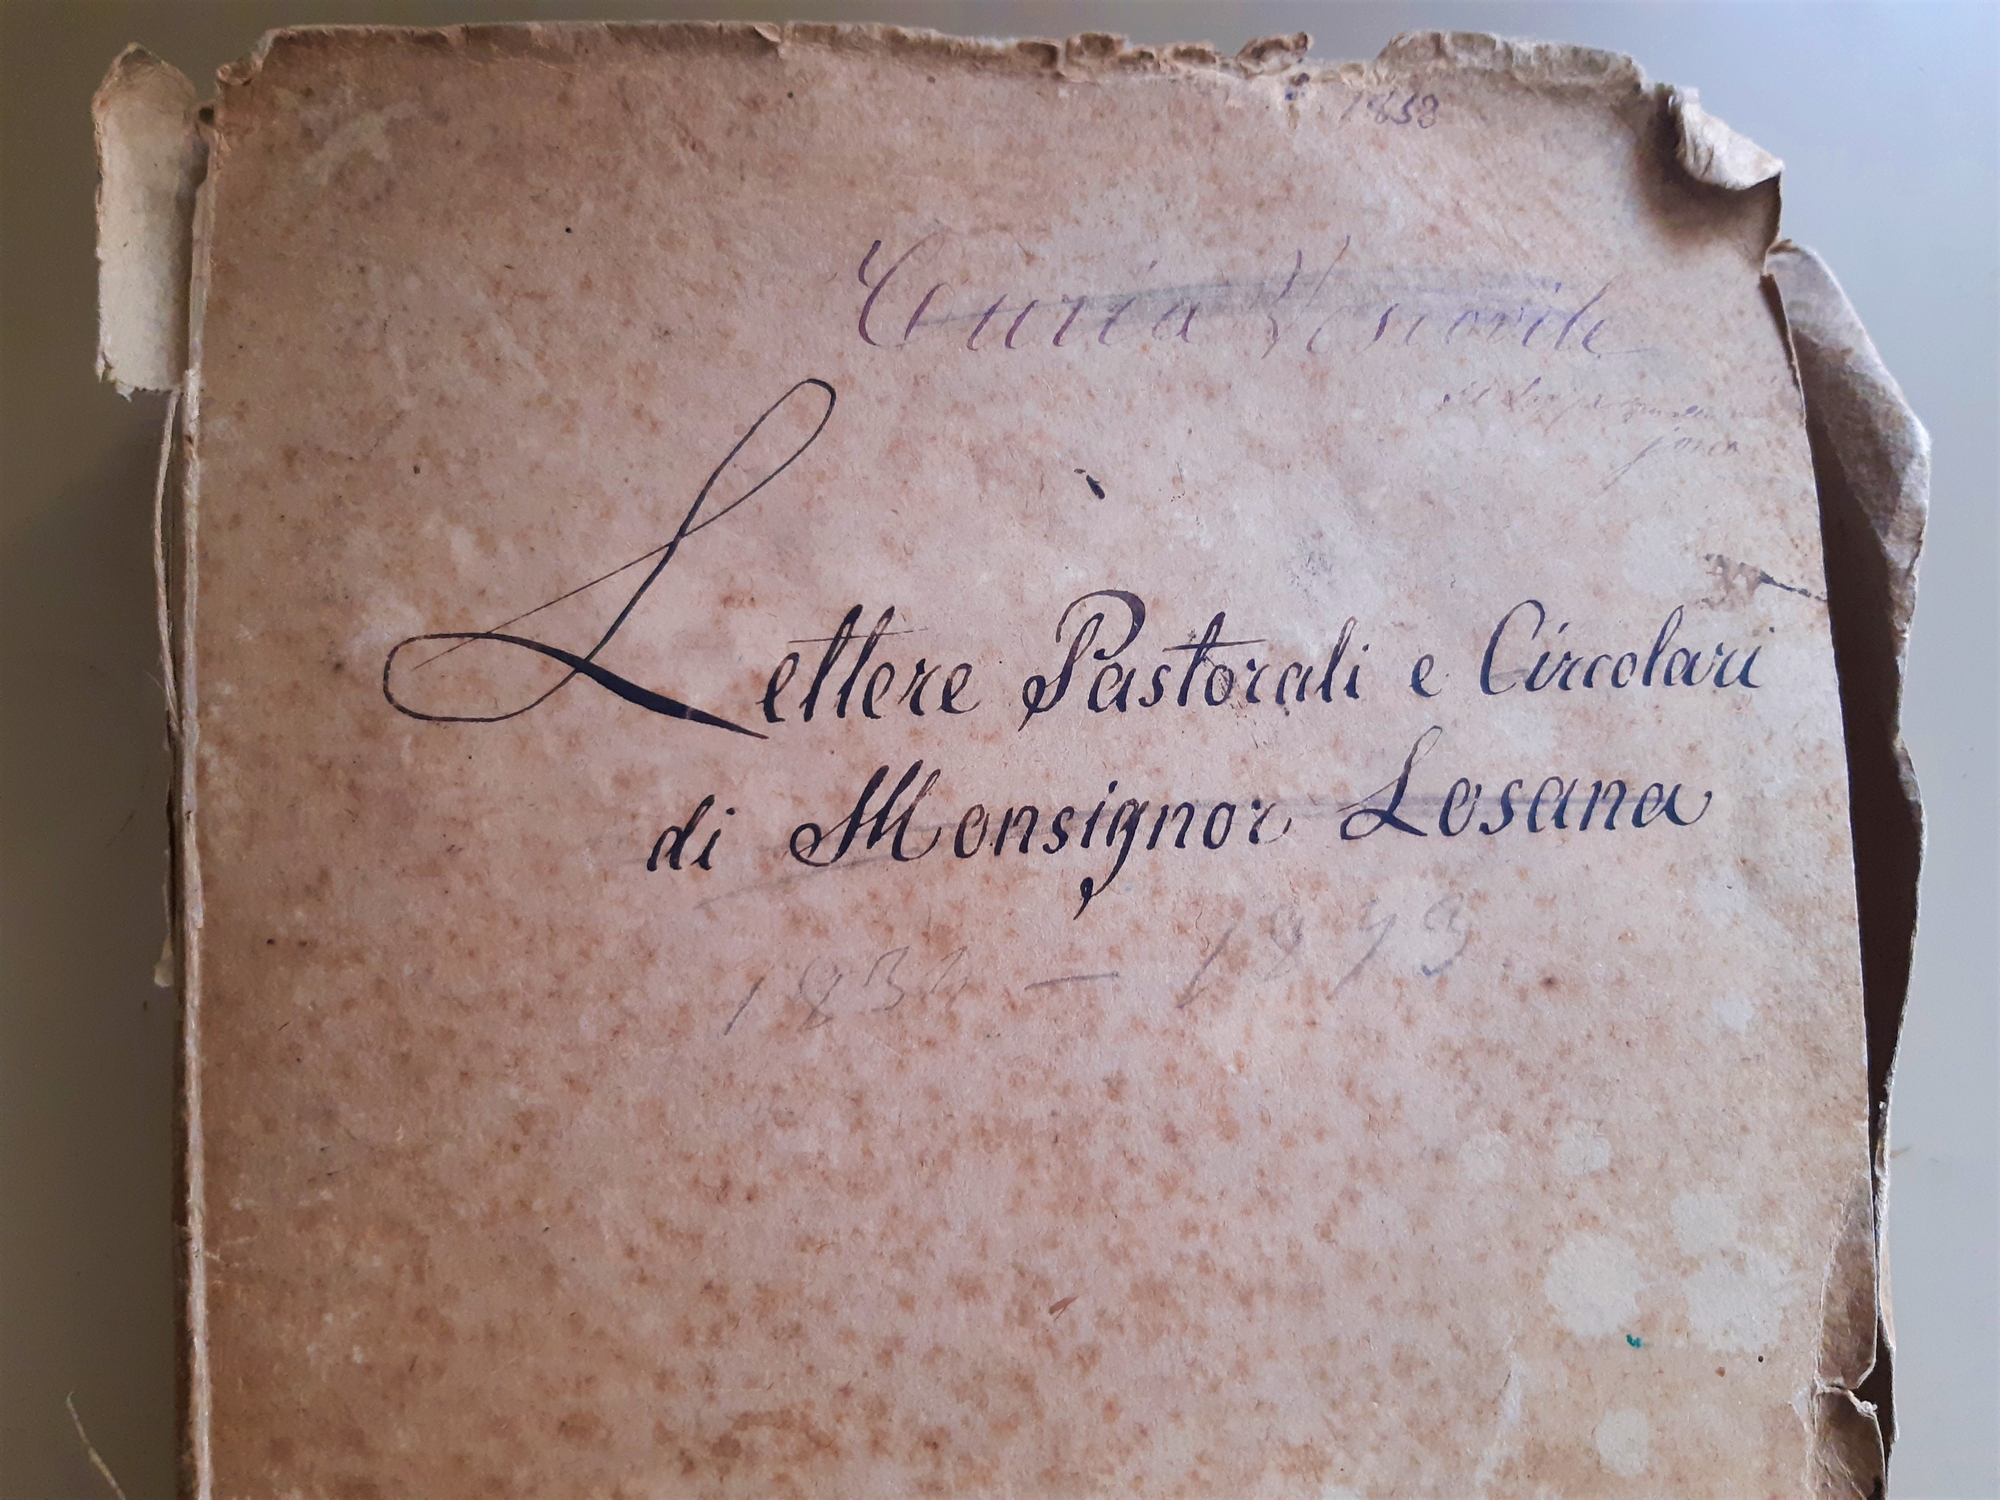 1858
Curia Vescovile
Lettere Pastorali e Circolari
di Monsignor Losana
1834 — 1873